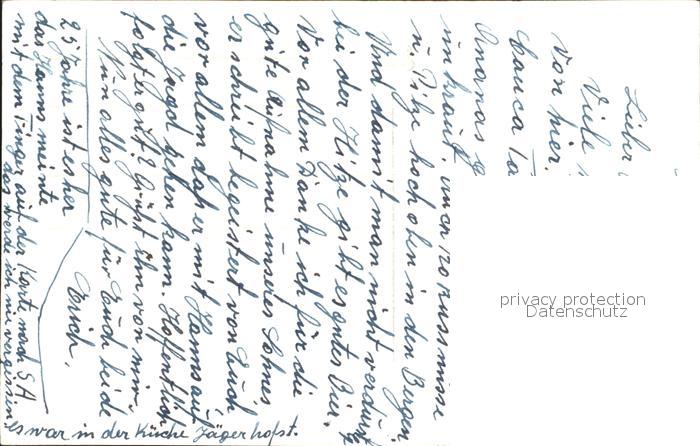 Liebe
Viele
von hier.
Cauca Ta
Ananas
u. Pilze hoch oben in den Bergen
Und damit man nicht verdurst
bei der Hitze gibt es gutes Bier.
Vor allem Danke ich für die
gute Aufnahme unseres Sohnes,
er schreibt begeistert von Euch
vor allem daß er mit Hanns auf
die Jagd gehen kann. Hoffentlich
folgt er gut? Grüßt ihn von mir.
Nun alles gute für Euch beide
Erich.
25 Jahre ist es her
das Hanns meinte
mit dem Finger auf der Karte nach S.A.
das werde ich nie vergessen
es war in der Küche Jägerhofst.
privacy protection
Datenschutz